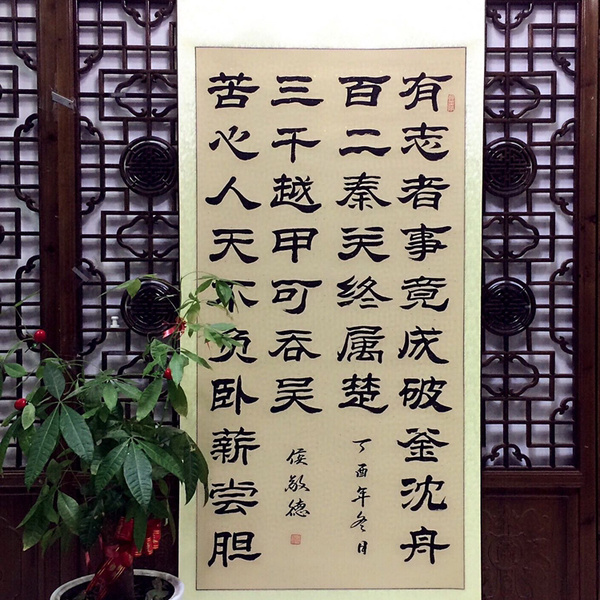 有志者事竟成破釜沈舟
百二秦关终属楚
丁酉年冬月
苦心人天不负卧薪尝胆
三千越甲可吞吴
侯敬德